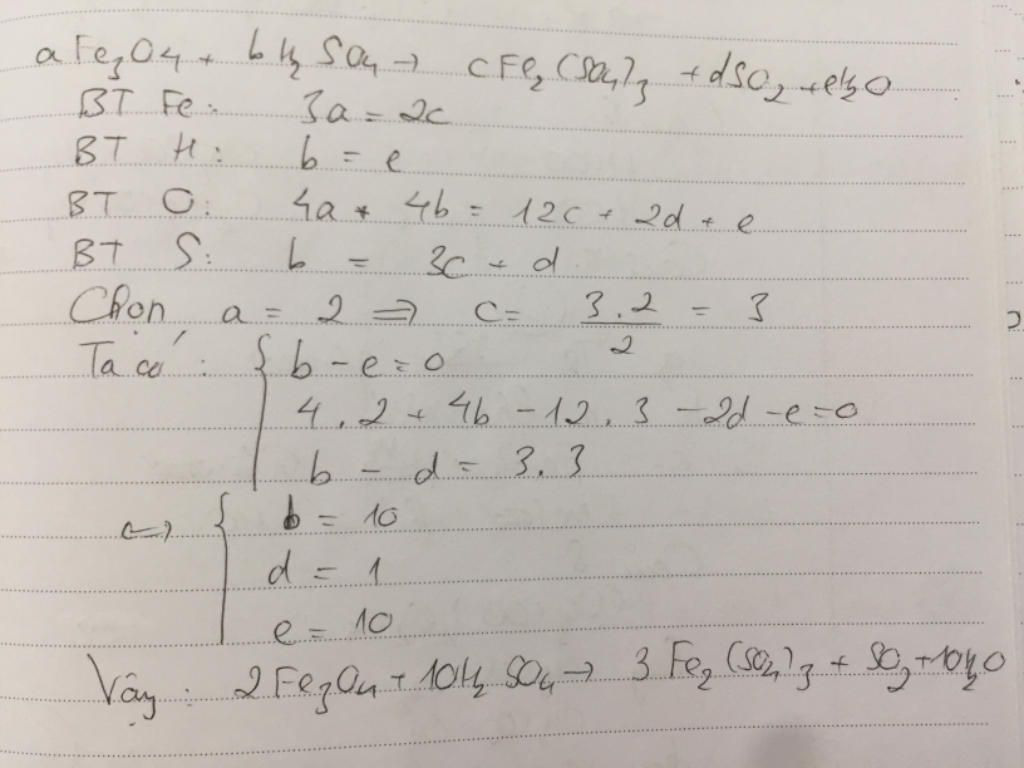 aFe₃O₄ + bH₂SO₄ → cFe₂(SO₄)₃ + dSO₂ + eH₂O
BT Fe: 3a = 2c
BT H: b = e
BT O: 4a + 4b = 12c + 2d + e
BT S: b = 3c + d
Chọn a = 2 ⇒ c = 3.2/2 = 3
Ta có: { b - e = 0
4.2 + 4b - 12.3 - 2d - e = 0
b - d = 3.3
↔ { b = 10
d = 1
e = 10
Vậy: 2Fe₃O₄ + 10H₂SO₄ → 3Fe₂(SO₄)₃ + SO₂ + 10H₂O